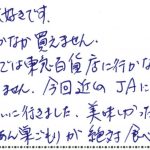 好きです。
かなか買えません。
では東急百貨店に行かな
ません。今回近のJAに
いに行きました。美味しかった
あん巣ごもりが絶対食べ